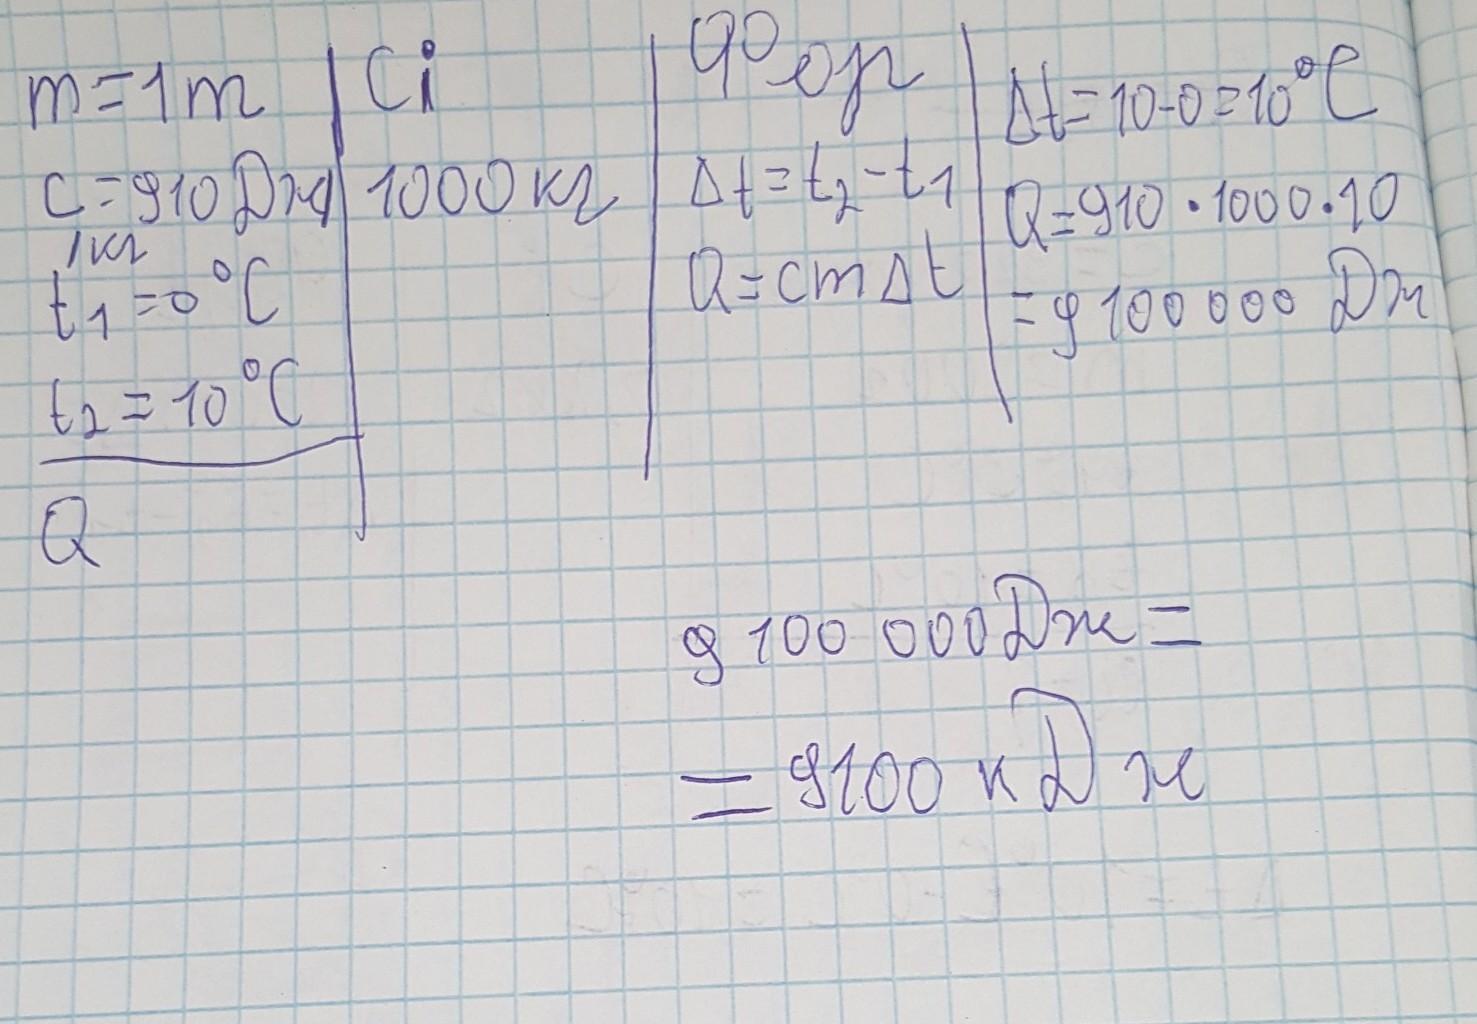 m=1т
c=910Дж
/кг
t1=0°C
t2=10°C
Q
Сі
1000кг
Фор
Δt=t2-t1
Q=cmΔt
Δt=10-0=10°C
Q=910·1000·10
=9 100 000 Дж
9 100 000Дж=
=9100 кДж